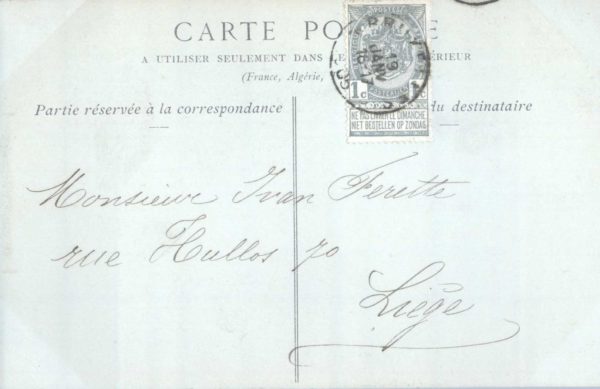 CARTE PO E
A UTILISER SEULEMENT DANS LE ÉRIEUR
(France, Algérie,
Partie réservée à la correspondance
du destinataire
19
JANV
16-17
1c 1
NE PAS LIVRER LE DIMANCHE
NIET BESTELLEN OP ZONDAG
Monsieur Ivan Ferette
rue Hullos 70
Liége